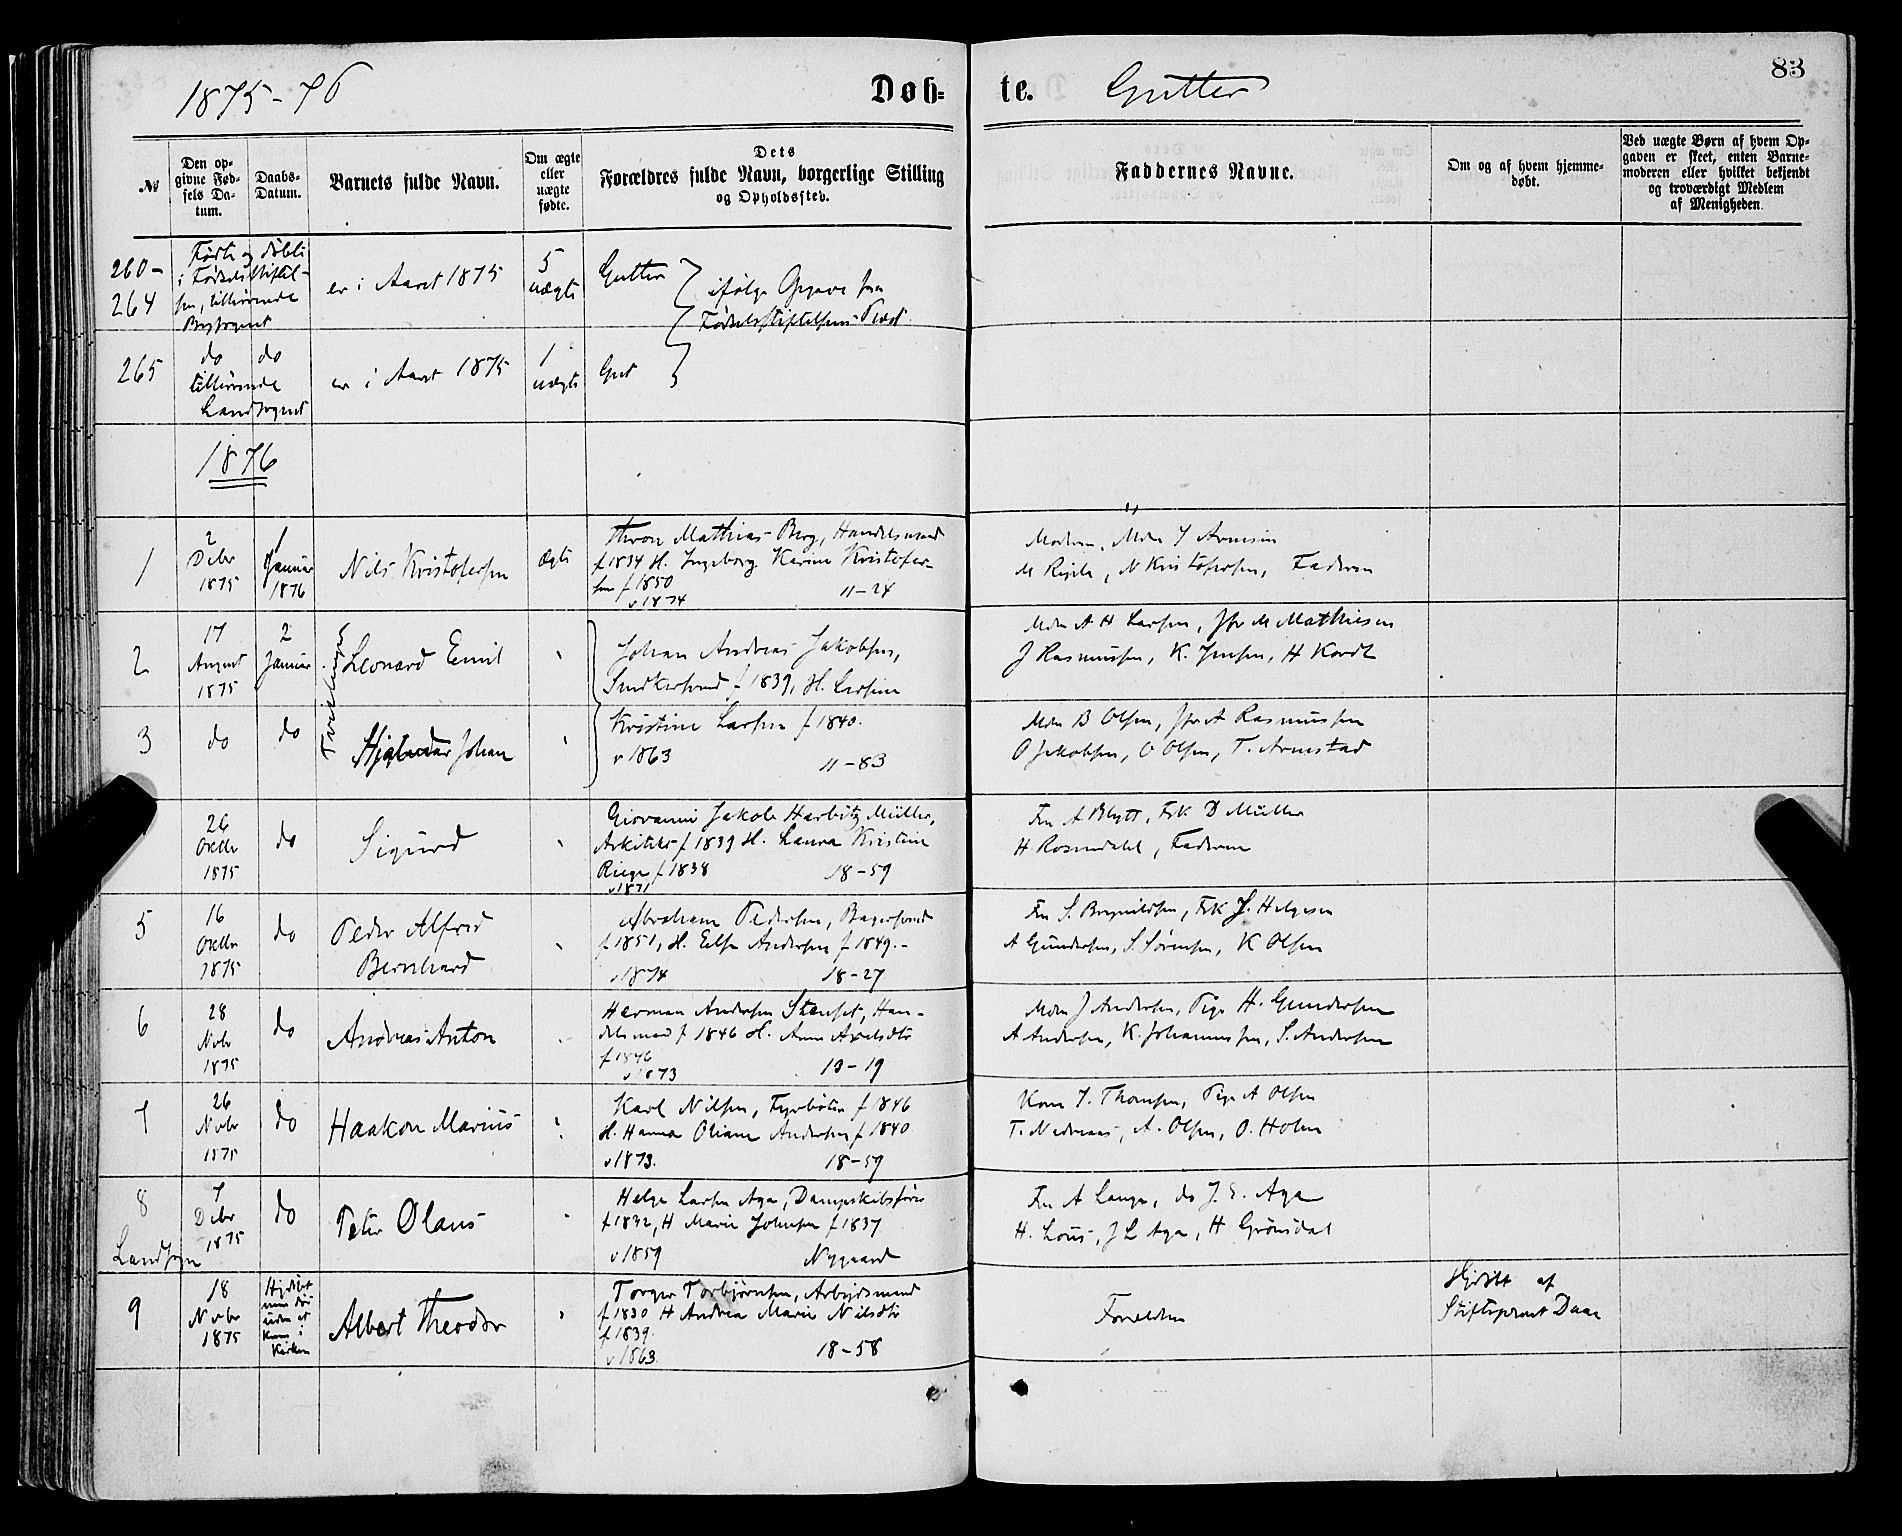 1875-76
Døb=
te. Gutter
83
No
Den op-
givne Fød-
sels Da-
tum.
Daabs-
Datum.
Barnets fulde Navn.
Om ægte
eller
uægte
fødte.
Dets
Forældres fulde Navn, borgerlige Stilling
og Opholdssted.
Faddernes Navne.
Om og af hvem hjemme-
døbt.
Ved uægte Børn af hvem Op-
gaven er skeet, enten Barne-
moderen eller hvilket bekjendt
og troværdigt Medlem
af Menigheden.
260-
264
Fødte og døbte
i Fødselsstiftel-
sen, tilhørende
Bysognet
er i Aaret 1875
5
uægte
Gutter
ifølge Opgave fra
Fødselsstiftelsens Præst
265
do do
tilhørende
Landsognet
er i Aaret 1875
1
uægte
Gut
1876
1
2
Decbr
1875
1
Januar
1876
Nils Kristofersen
Ægte
Mathias Berg, Handelsmand
f 1834 H. Ingeborg Karine Kristofer-
sen f 1850
v 1874 11-24
Moderen, Mdm J Arnesen
M N Kristofersen, Faderen
2
17
August
1875
2
Januar
Tvillinger
Leonard Emil
Johan Andreas Jakobsen,
f 1839, H.
Mdm A H Larsen, Jfr M Mathiesen
J Rasmussen, K. Jensen, H Kordt
3
do
do
Johan
Kristine Larsen f 1840.
v 1863 11-83
Mdm B Olsen, Jfr A Rasmussen
O Jakobsen, O Olsen, T. Arnestad
26
Octbr
1875
do
Sigurd
Giovanni Jakob Harbitz Müller,
Arkitekt f 1839 H. Laura Kristine
f 1838 18-59
v 1871
Fru A Blytt, Frk D Müller
H Rosendahl, Faderen
5
16
Octbr
1875
do
Peder Alfred
Bernhard
Abraham Pedersen, Bagersvend
f 1851, H. Elise Andersen f 1849.-
v 1874 18-27
Fru S. Frk J. Helgesen
A Gundersen, S Sørensen, K Olsen
6
28
Novbr
1875
do
Andreas Anton
Herman Andersen Stenset, Han-
delsmand f 1846 H. Anna Axelsdtr
f 1846
v 1873 13-19
Mdm J Andersen, Pige H. Gundersen
A Andersen, K. Johannessen, S. Andersen
7
26
Novbr
1875
do
Haakon Marius
Karl Nilsen, Fyrbøter f 1846
H. Hanna Oliane Andersen f 1840
v 1873. 18-59
Kone J. Thomsen, Pige A Olsen
T. Nedreaas, A. Olsen, O. Holm
8
Landsogn
7
Decbr
1875
do
Peter Olaus
Helge Larsen Aga, Dampskibsfører
f 1832, H Marie Johnsen f 1837
v 1859 Nygaard
Fru A Lange, do J. E. Aga
H. Lous, J L Aga, H Grønsdal
9
18
Novbr
1875
Hjdøbt
Kirken
Albert Theodor
Torger Torbjørnsen, Arbejdsmand
f 1830 H Andrea Marie Nilsdtr
f 1839.
v 1863. 18-58
Forældrene
Hjdøbt af
Stiftsprovst Daae